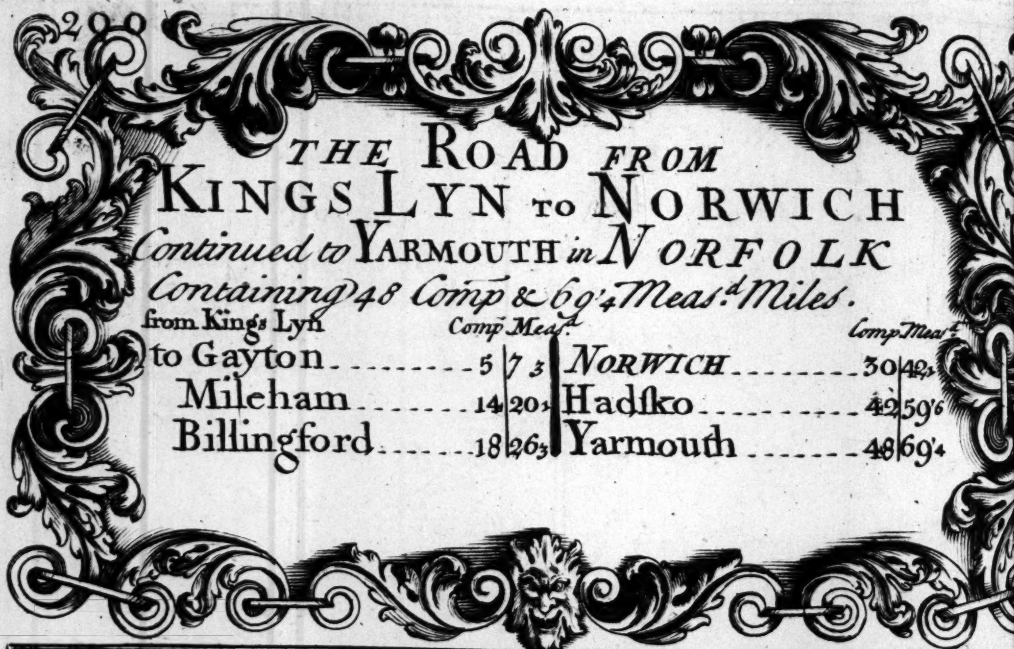 200
THE ROAD FROM
KINGS LYN TO NORWICH
Continued to YARMOUTH in NORFOLK
Containing 48 Comp̄ & 69'4 Meas.d Miles.
from Kings Lyn Comp. Meas.d
to Gayton 5 7 3
Mileham 14 20 1
Billingford 18 26 3
Comp. Meas.d
NORWICH 30 42
Hadſko 42 59'6
Yarmouth 48 69'4